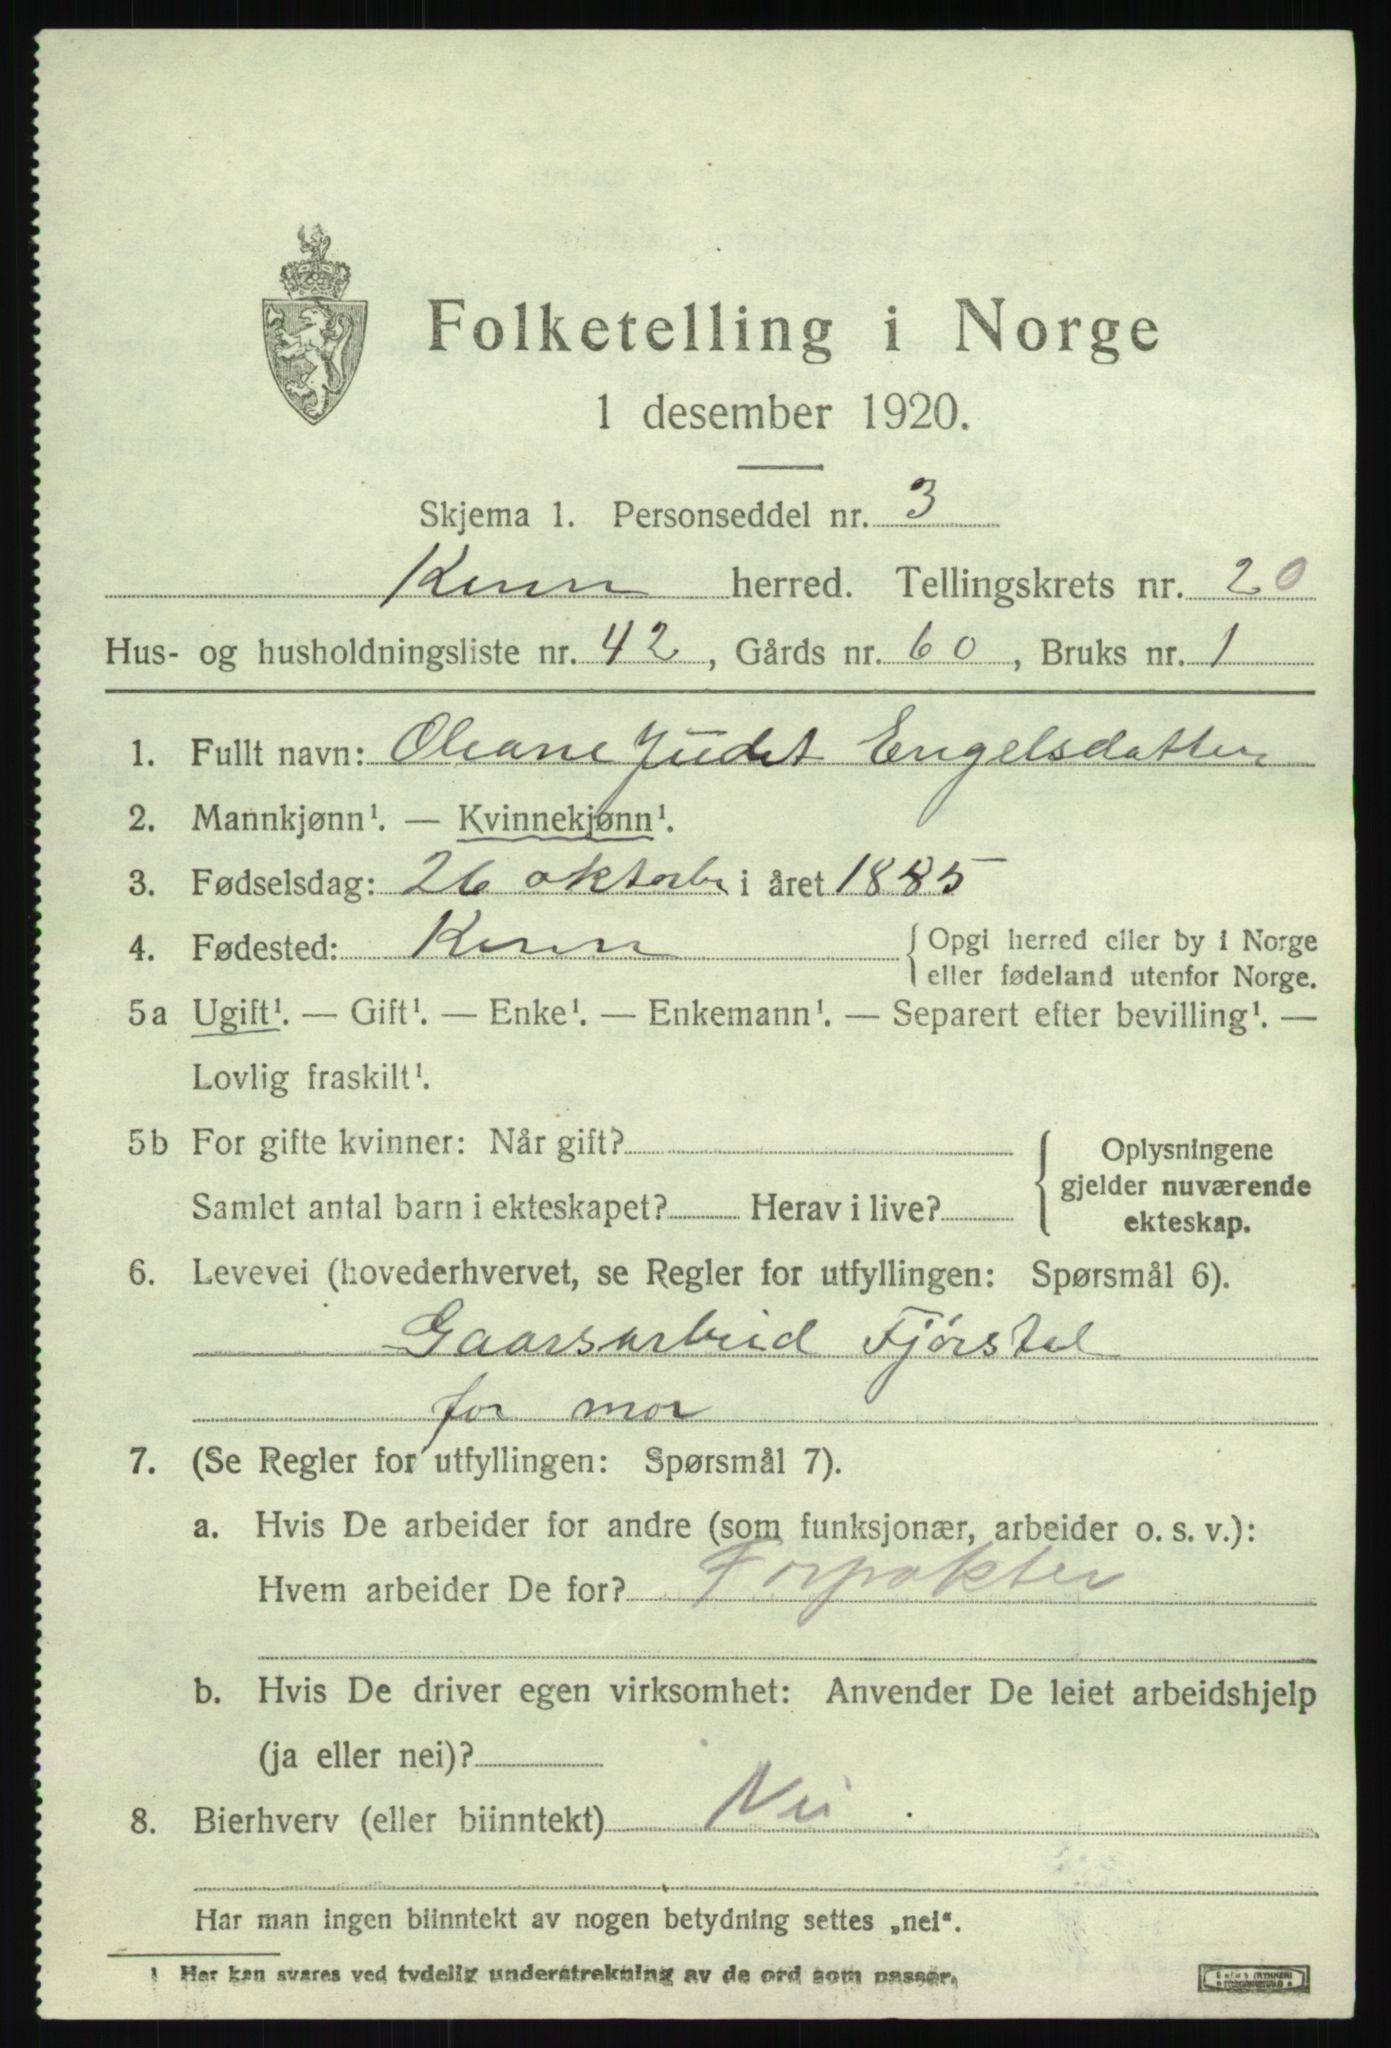 Folketelling i Norge
1 desember 1920.
Skjema 1. Personseddel nr. 3
Kinn herred. Tellingskrets nr. 20
Hus- og husholdningsliste nr. 42, Gårds nr. 60, Bruks nr. 1
1. Fullt navn: Oleane Judit Engelsdatter
2. Mannkjønn¹. — Kvinnekjønn¹.
3. Fødselsdag: 26 oktober i året 1885
4. Fødested: Kinn { Opgi herred eller by i Norge
eller fødeland utenfor Norge.
5a Ugift¹. — Gift¹. — Enke¹. — Enkemann¹. — Separert efter bevilling¹. —
Lovlig fraskilt¹.
5b For gifte kvinner: Når gift?
Samlet antal barn i ekteskapet? Herav i live?
{ Oplysningene
gjelder nuværende
ekteskap.
6. Levevei (hovederhvervet, se Regler for utfyllingen: Spørsmål 6).
Gaarsarbeid Fjørstel
for mor
7. (Se Regler for utfyllingen: Spørsmål 7).
a. Hvis De arbeider for andre (som funksjonær, arbeider o. s. v.):
Hvem arbeider De for? Forpakter
b. Hvis De driver egen virksomhet: Anvender De leiet arbeidshjelp
(ja eller nei)?
8. Bierhverv (eller biinntekt) Nei
Har man ingen biinntekt av nogen betydning settes „nei“.
¹ Her kan svares ved tydelig understrekning av de ord som passer.